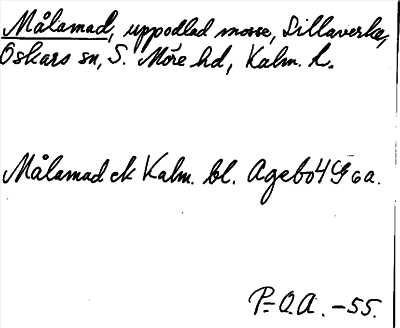 Målamad, uppodlad mosse, Lillaverke,
Oskars sn, S. Möre hd, Kalm. l.
Målamad ek Kalm. bl. Agebo 4G 6a.
P-O.A. -55.